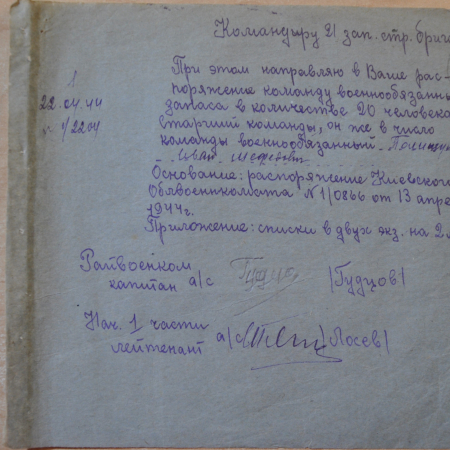 Командиру 21 зап. стр. бриг
1
22.04.44
№ 1/2204
При этом направляю в Ваше рас-
поряжение команду военнообязанны
запаса в количестве 20 человека
старший команды, он же в число
команды военнообязанный
Основание: распоряжение Киевского
Облвоенкомата №1/0866 от 13 апре
1944г.
Приложение: списки в двух экз. на 2 л
Райвоенком
капитан а/с /Гудцов/
Нач. 1 части
лейтенант а/с /Лосев/